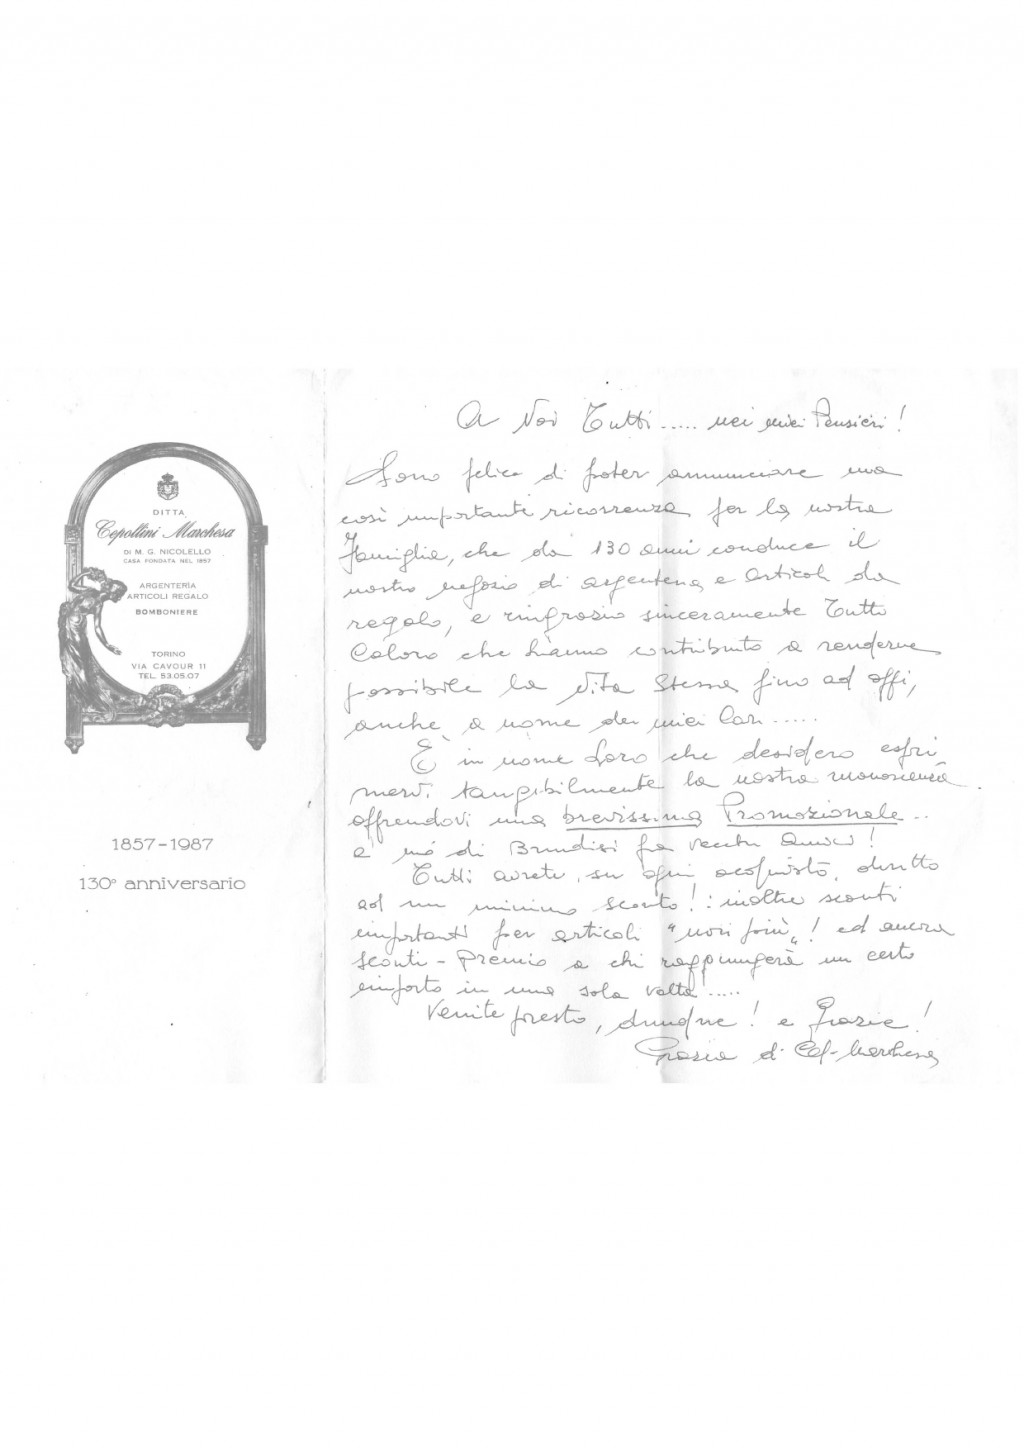 DITTA
Cepollini Marchesa
DI M. G. NICOLELLO
CASA FONDATA NEL 1857
ARGENTERIA
ARTICOLI REGALO
BOMBONIERE
TORINO
VIA CAVOUR 11
TEL. 53.05.07
1857-1987
130° anniversario
A Voi Tutti..... nei miei Pensieri!
Sono felice di poter annunciare una
così importante ricorrenza per la nostra
Famiglia, che da 130 anni conduce il
nostro negozio di argenteria e articoli da
regalo, e ringrazio sinceramente Tutti
Coloro che hanno contribuito a renderne
possibile la Vita Stessa fino ad oggi,
anche a nome dei miei Cari.....
È in nome Loro che desidero espri
mervi tangibilmente la nostra riconoscenza
offrendovi una brevissima Promozionale..
e di Brindisi fra vecchi Amici!
Tutti avrete, su ogni acquisto, diritto
ad un minimo sconto!: inoltre sconti
importanti per articoli "non più"! ed ancora
sconti-Premio a chi raggiungerà un certo
importo in una sola volta!.....
Venite presto, dunque! e Grazie!
Grazia di Cep-Marchesa